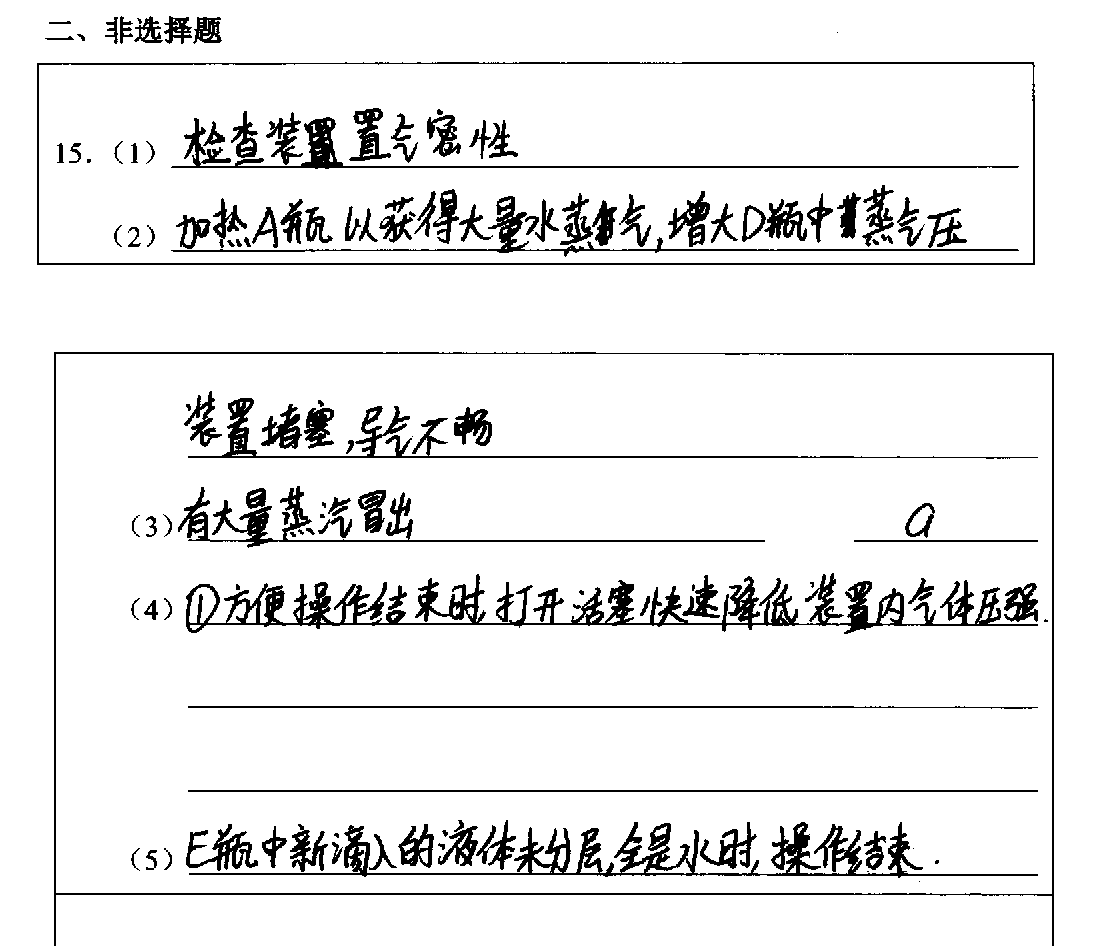 二、非选择题
15.（1）检查装置气密性
（2）加热A瓶以获得大量水蒸气,增大D瓶中蒸气压
装置堵塞,导气不畅
（3）有大量蒸汽冒出 a
（4）①方便操作结束时,打开活塞快速降低装置内气体压强.
（5）E瓶中新滴入的液体未分层,全是水时,操作结束.